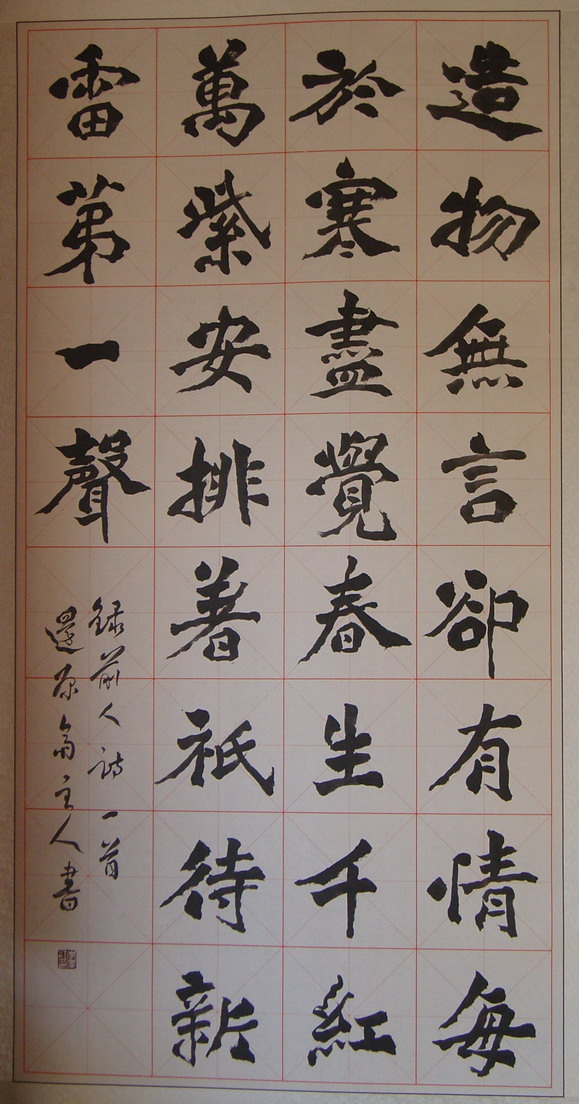 造物無言卻有情每
於寒盡覺春生千紅
萬紫安排着祇待新
雷苐一聲
録前人詩一首
還原斋主人書